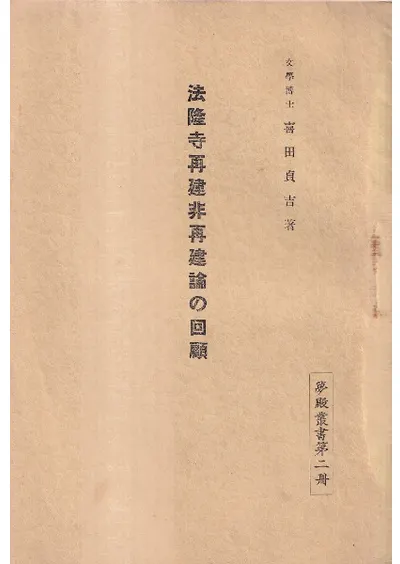 文學博士 喜田貞吉著
法隆寺再建非再建論の回顧
夢殿叢書第二册